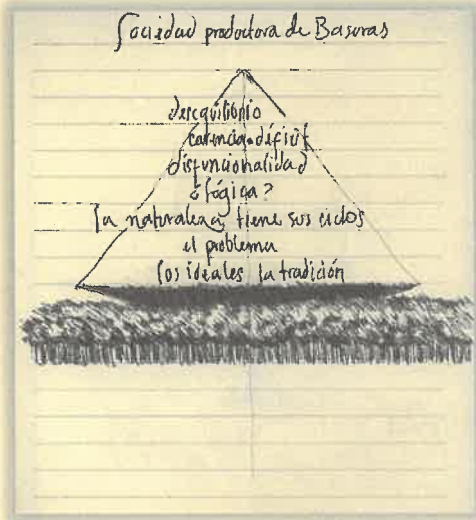 Sociedad productora de Basuras
desequilibrio
carencia • déficit
disfuncionalidad
¿lógica?
la naturaleza tiene sus ciclos
el problema
los ideales la tradición